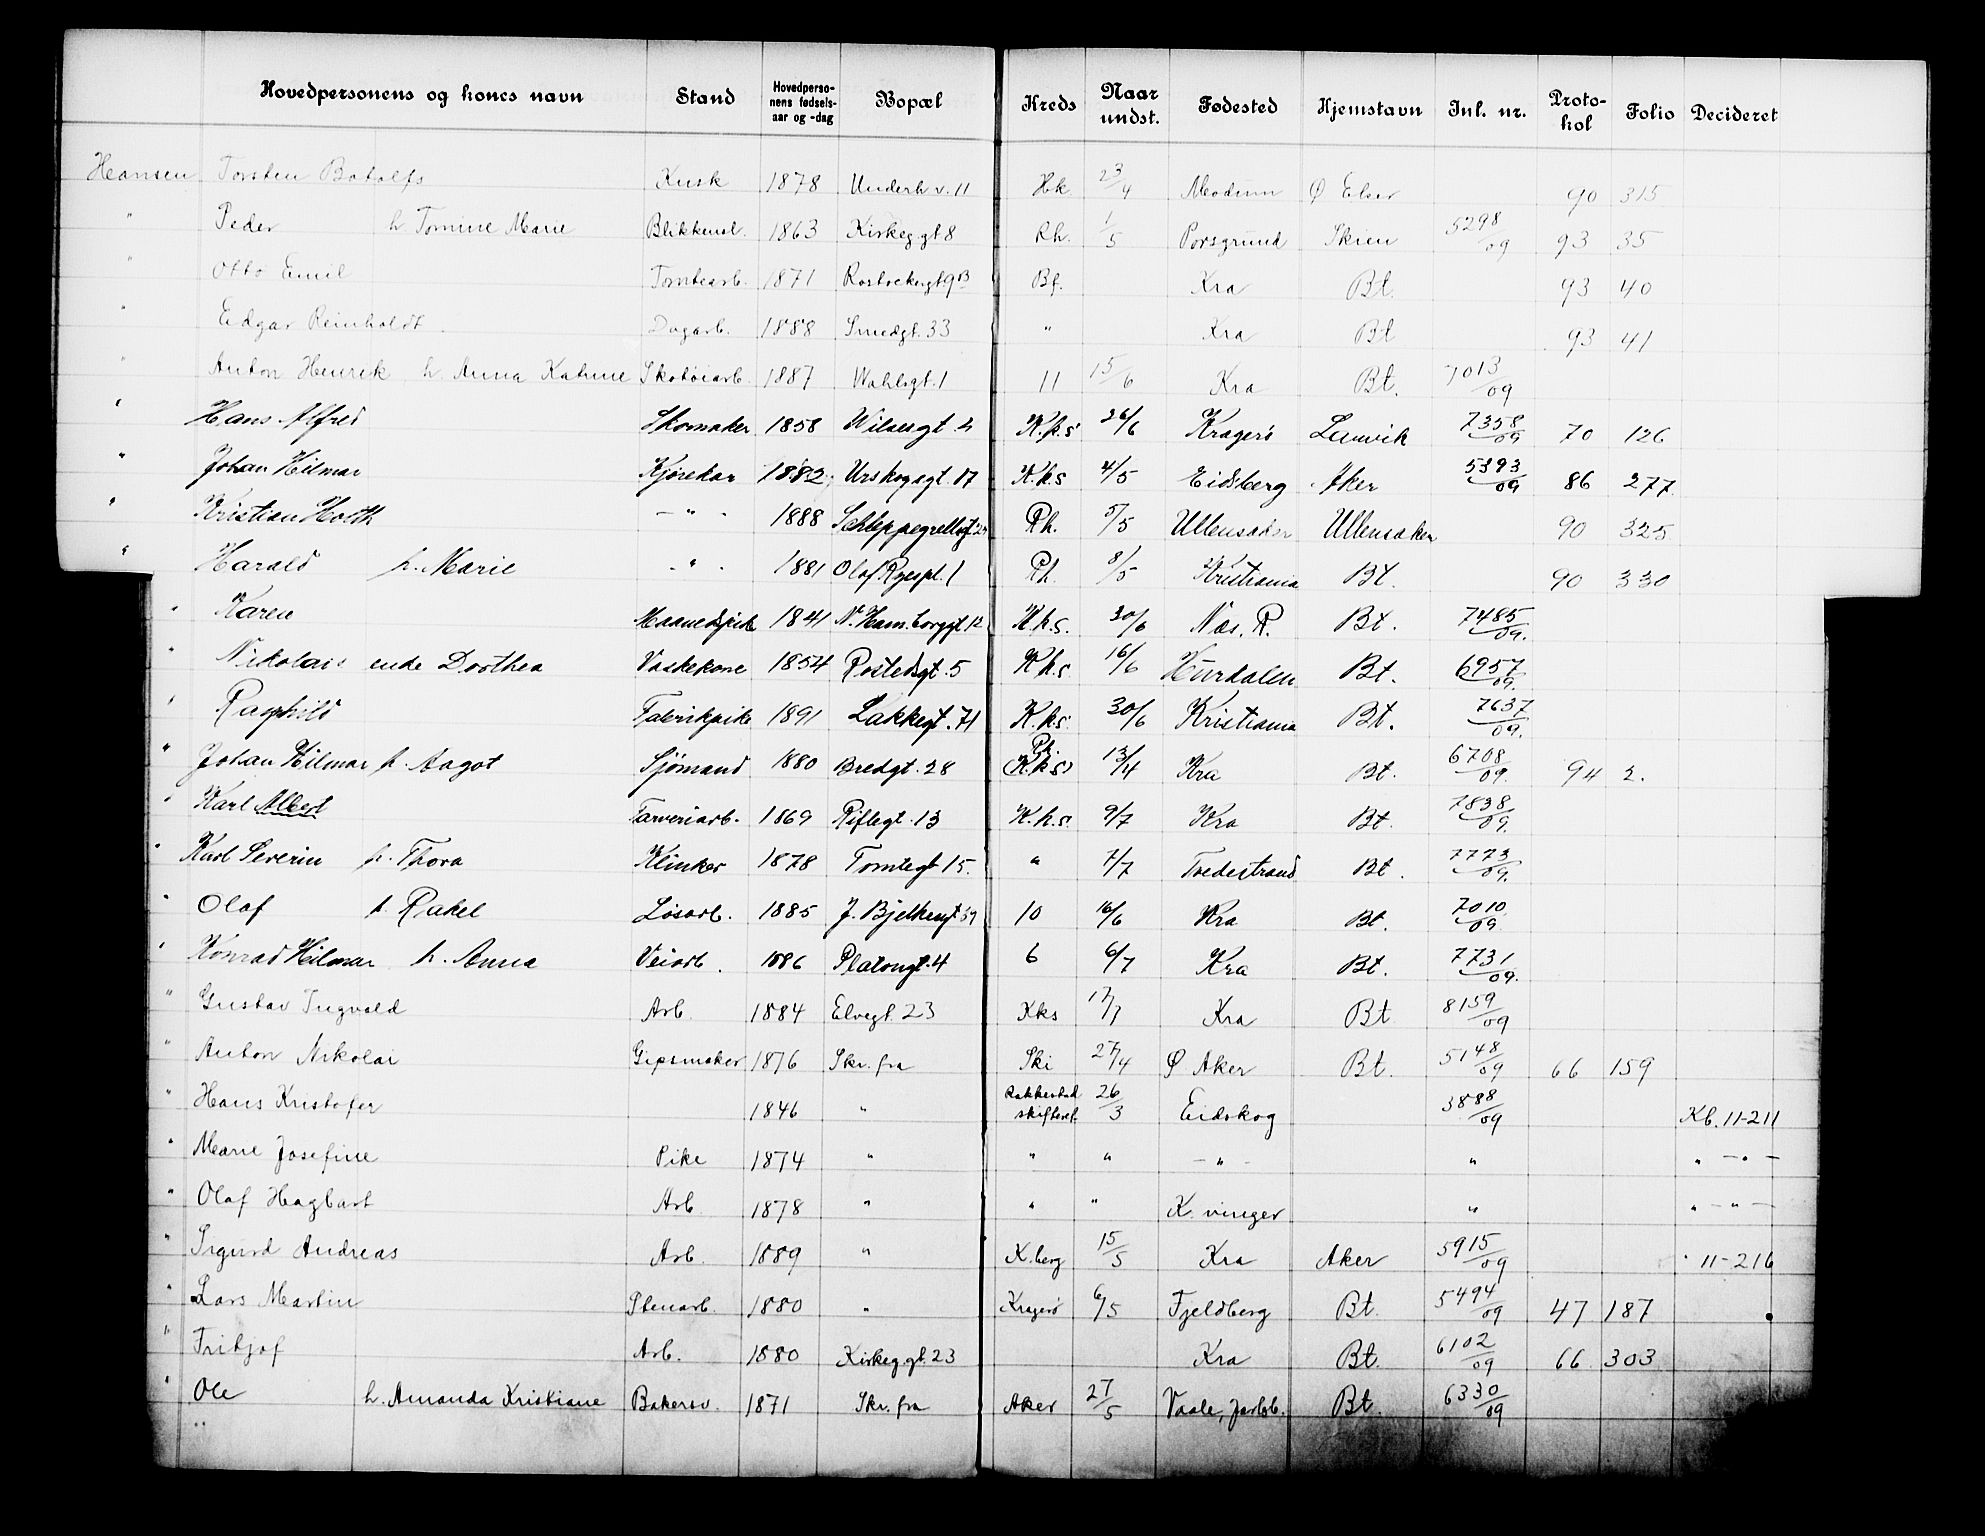 Hovedpersonens og kones navn Stand Hovedperso-nens fødsels-aar og -dag Bopæl Kreds Naar undst. Fødested Hjemstavn Inl. nr. Proto-kol Folio Decideret
Hansen Torsten Botolfs Kusk 1878 Underh v. 11 Hk 23/4 Modum Ø 90 315
" Peder h. Tomine Marie Blikkensl. 1863 Kirkeg.gt 8 Rh. 1/5 Porsgrund Skien 5298/09 93 35
" Otto Emil Tomtearb. 1871 Rostockergt 9B Bf. Kra Bt. 93 40
" Edgar Reinholdt Dagarb. 1888 Smedgt. 33 " Kra Bt 93 41
" Anton Henrik h. Anna Katrine Skotøiarb. 1887 Wahlsgt. 1 11 15/6 Kra Bt. 7013/09
" Hans Alfred Skomaker 1858 Wilsesgt. 2 K.k.s 26/6 Kragerø Laurvik 7358/09 70 126
" Johan Hilmar Kjørekar 1882 Urskogsgt. 17 K.k.s 4/5 Eidsberg Aker 5393/09 86 277
" Kristian Holth - " - 1888 Schleppegrellsgt 27 Rh. 5/5 Ullensaker Ullensaker 90 325
" Harald h. Marie - " - 1881 Olaf Ryespl. 1 Rh. 8/5 Kristiania Bt. 90 330
" Karen Maanedspike 1841 N. Ham.borggt. 12 K.k.s. 30/6 Næs. R. Bt. 7485/09.
" Nikolais enke Dorthea Vaskekone 1854 Rostedsgt. 5 K.k.s. 16/6 Hurdalen Bt. 6957/09.
" Ragnhild Fabrikpike 1891 Lakkegt. 71 K.k.s. 30/6 Kristiania Bt. 7637/09.
" Johan Hilmar h. Aagot Sjømand 1880 Bredgt. 28 Rh. (K.k.s) 13/4 Kra Bt. 6708/09. 94 2.
" Karl Albert Farveriarb. 1869 Riflegt. 13 K.k.s. 9/7 Kra Bt. 7838/09.
" Karl Severin h. Thora Klinker 1878 Tomtegt 15. " 7/7 Tvedestrand Bt. 7773/09.
" Olaf h. Rakel Løsarb. 1885 J. Bjelkesgt 59 10 16/6 Kra Bt. 7010/09.
" Konrad Hilmar h. Anna Veiarb. 1886 Platousgt. 4 6 6/7 Kra Bt. 7731/09.
" Gustav Ingvald Arb. 1884 Elvegt. 23 Kks 17/7 Kra Bt 8159/09
" Anton Nikolai Gipsmaker 1876 Skr. fra Ski 27/4 Ø Aker Bt. 5148/09 66 159
" Hans Kristofer 1846 " Rakkestad skifteret 26/3 Eidskog 3888/09 Kb. 11-211
" Marie Josefine Pike 1874 " " " - " - " " - " -
" Olaf Hagbart Arb. 1878 " " " K.vinger " " - " -
" Sigurd Andreas Arb. 1889 " K.berg 15/5 Kra Aker 5915/09 " 11-216
" Lars Martin Stenarb. 1880 " Kragerø 6/5 Fjeldberg Bt. 5494/09 47 187
" Fritjof Arb. 1880 Kirkeg.gt. 23 Kra Bt. 6102/09 66 303
" Ole h. Amanda Kristiane Bakersv. 1871 Skr. fra Aker 27/5 Vaale, Jarlsb. Bt. 6330/09